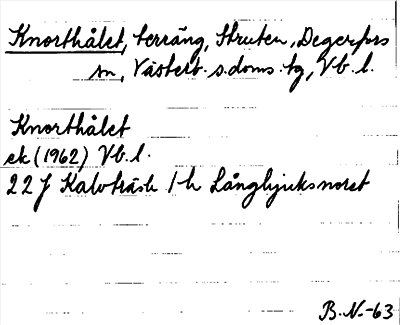 Knorthålet, terräng, Struten, Degerfors
sn, Västerb. s. doms. tg, Vb. l.
Knorthålet
ek (1962) Vb. l.
22 J Kalvträsk 1 h Långbjuksnoret
B. N. -63